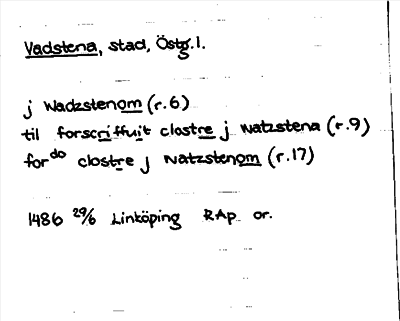 Vadstena, stad, Östg. l.
j Wadzstenom (r. 6)
til forscriffuit clostre j watzstena (r. 9)
for do clostre j watzstenom (r. 17)
1486 29/6 Linköping RAp or.